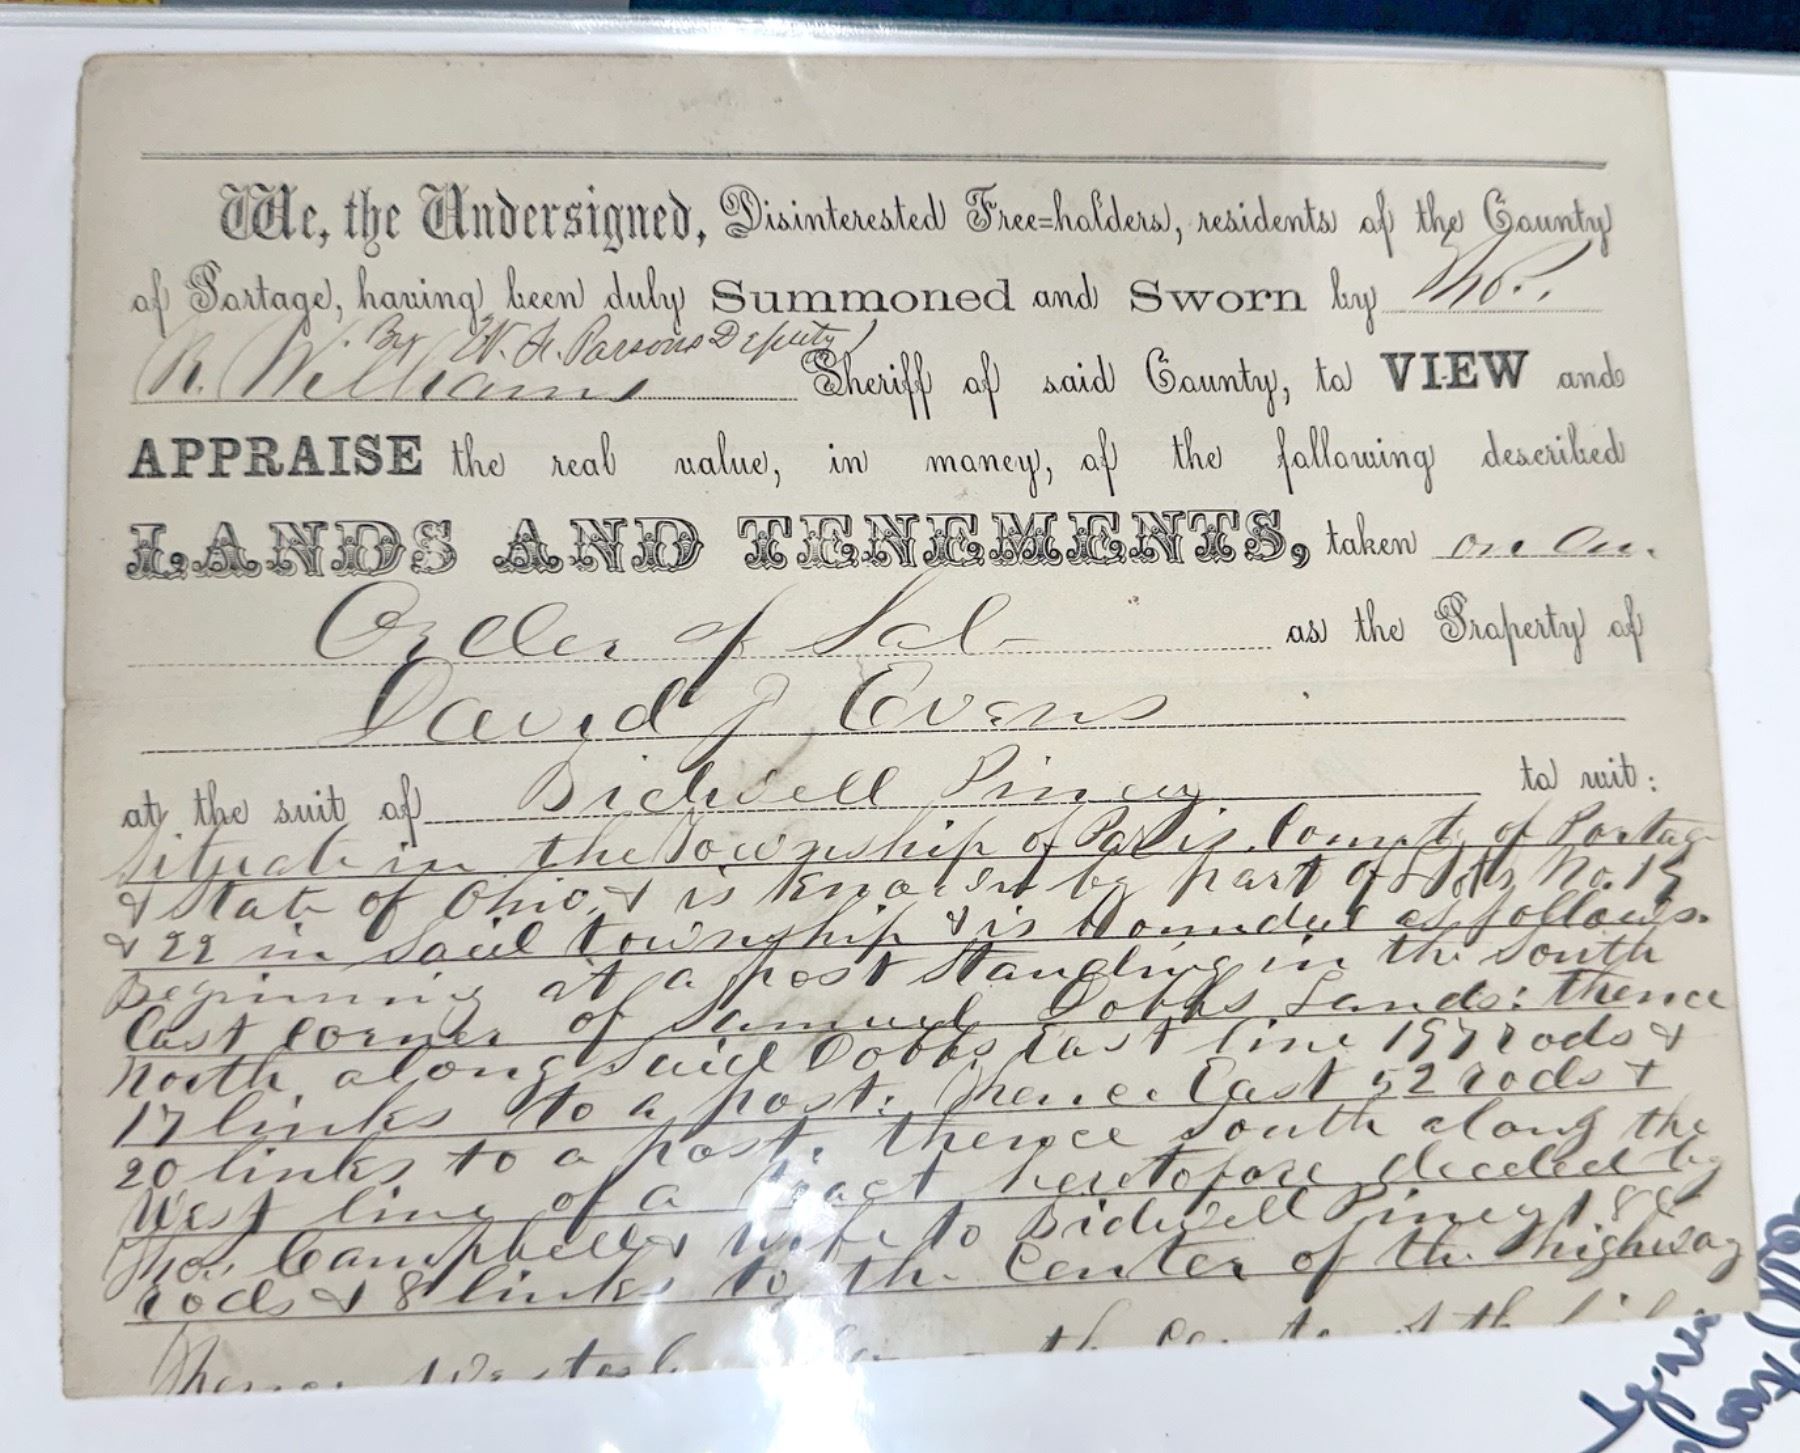 We, the Undersigned, Disinterested Free=holders, residents of the County
of Portage, having been duly Summoned and Sworn by Tho.
By W. H. Parsons Deputy
R. Williams Sheriff of said County, to VIEW and
APPRAISE the real value, in money, of the following described
LANDS AND TENEMENTS, taken on an
Order of Sal as the Property of
David J Evans
at the suit of Bidwell Piney to wit:
Situate in the Township of Paris, County of Portage
& State of Ohio, & is Known by part of Lots No. 15
& 22 in Said township & is Bounded as follows.
Beginning at a post Standing in the South
East Corner of Samuel Dobbs Lands: thence
North along said Dobbs East line 197 rods &
17 links to a post: Thence East 52 rods &
20 links to a post: thence South along the
West line of a tract heretofore deeded by
Tho. Campbell & wife to Bidwell Piney 188
rods & 8 links to the Center of the highway
Thence Westerly